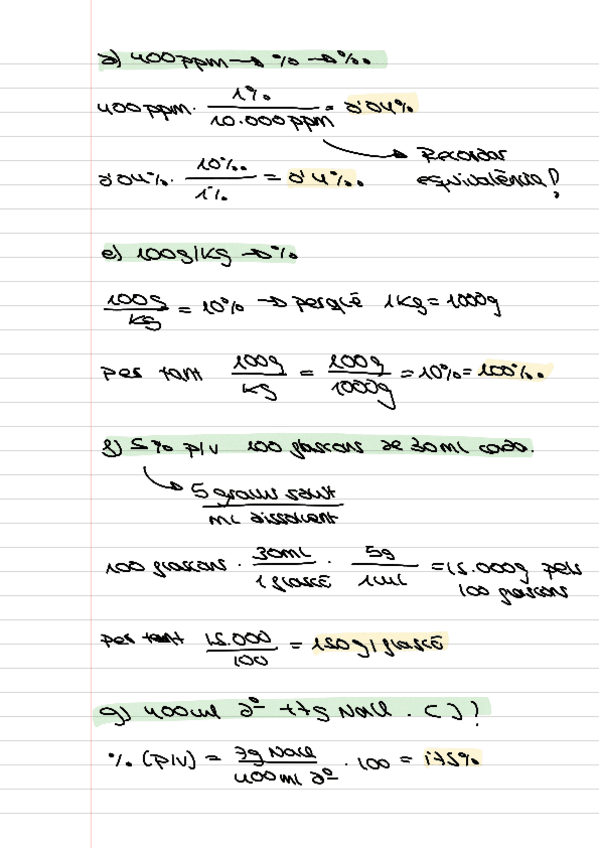 d) 400ppm → % → ‰
400ppm · 1% / 10.000ppm = 0'04%
→ Recordar equivalència!
0'04% · 10‰ / 1% = 0'4‰
e) 100g/Kg → %
100g / Kg = 10% → perquè 1Kg = 1000g
per tant 100g / Kg = 100g / 1000g = 10% = 100‰
f) 5% p/v 100 flascons de 30ml cada.
→ 5 grams solut / ml dissolvent
100 flascons · 30ml / 1 flascó · 5g / 1ml = 15.000g pels
100 flascons
per tant 15.000 / 100 = 150g/flascó
g) 400ml + 7g NaCl. [ ]?
% (p/v) = 7g NaCl / 400ml · 100 = 1'75%